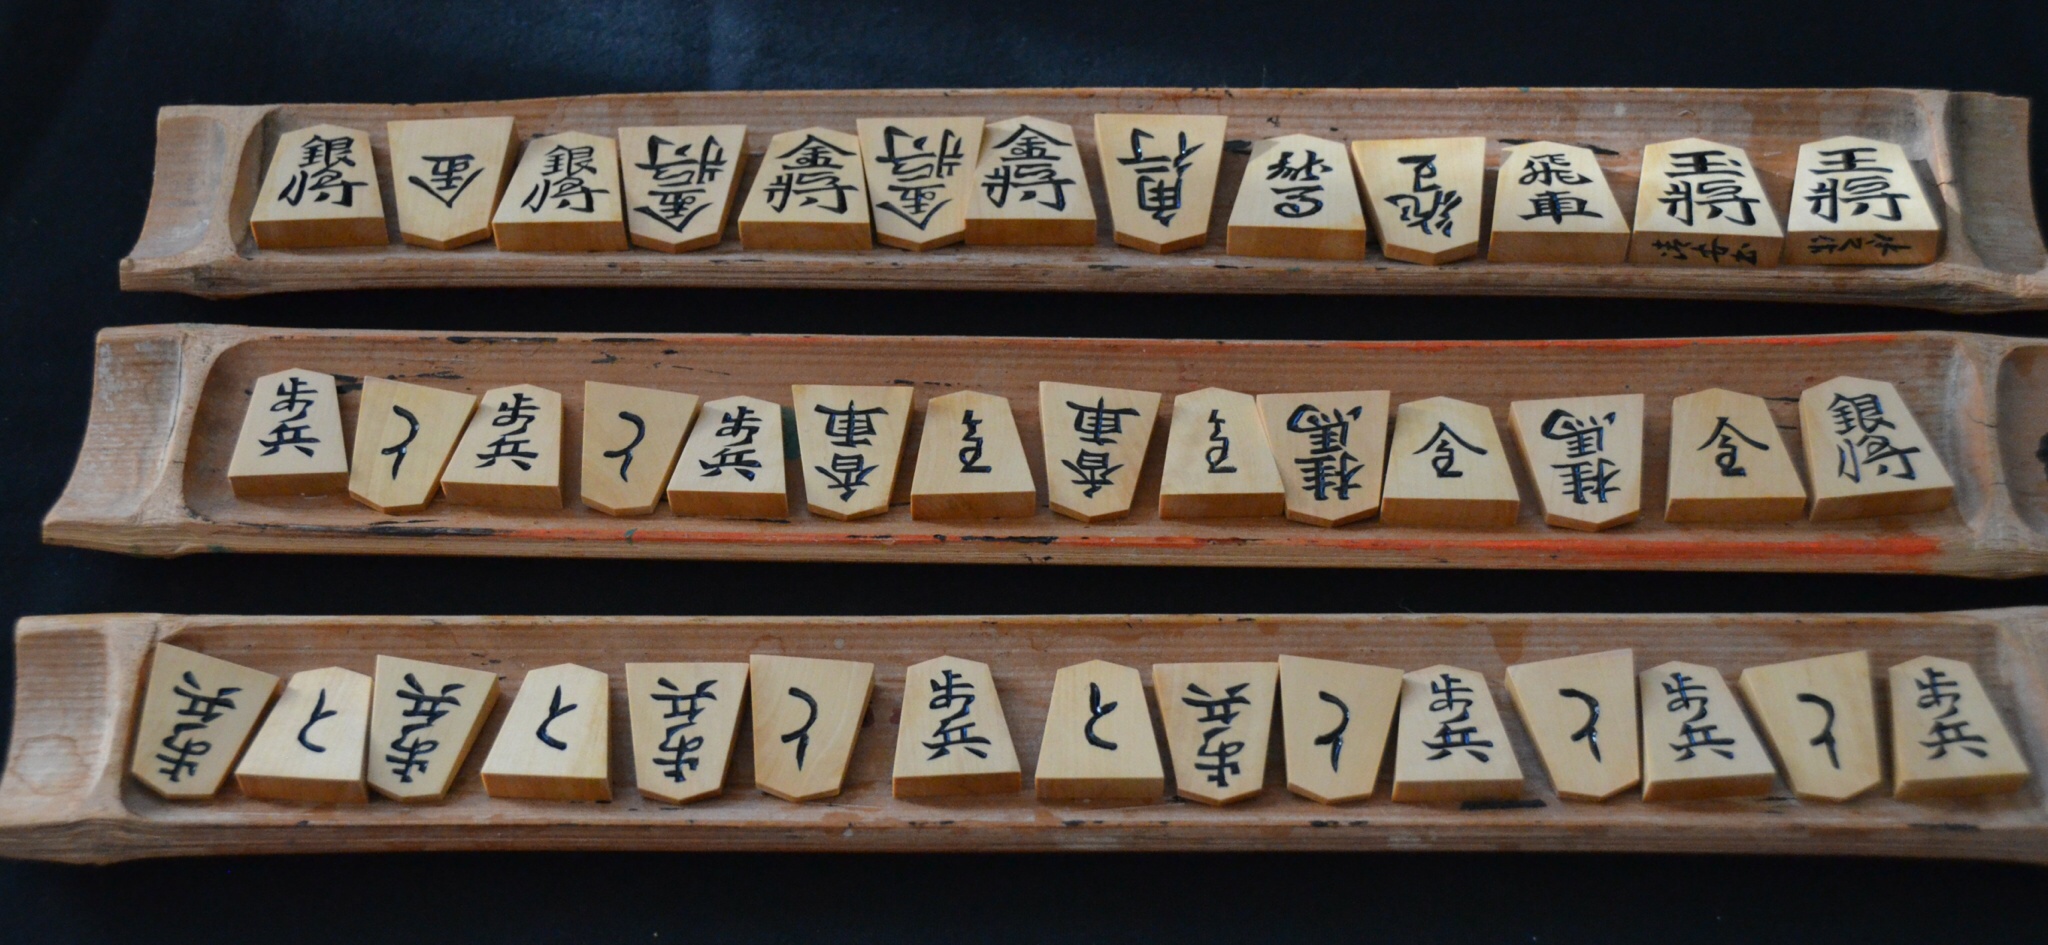 銀将 金 銀将 金将 金將 金将 金將 角行 龍馬 龍王 飛車 玉將 王將
歩兵 と 歩兵 と 歩兵 香車 香車 桂馬 全 桂馬 全 銀将
歩兵 と 歩兵 と 歩兵 と 歩兵 と 歩兵 と 歩兵 と 歩兵 と 歩兵